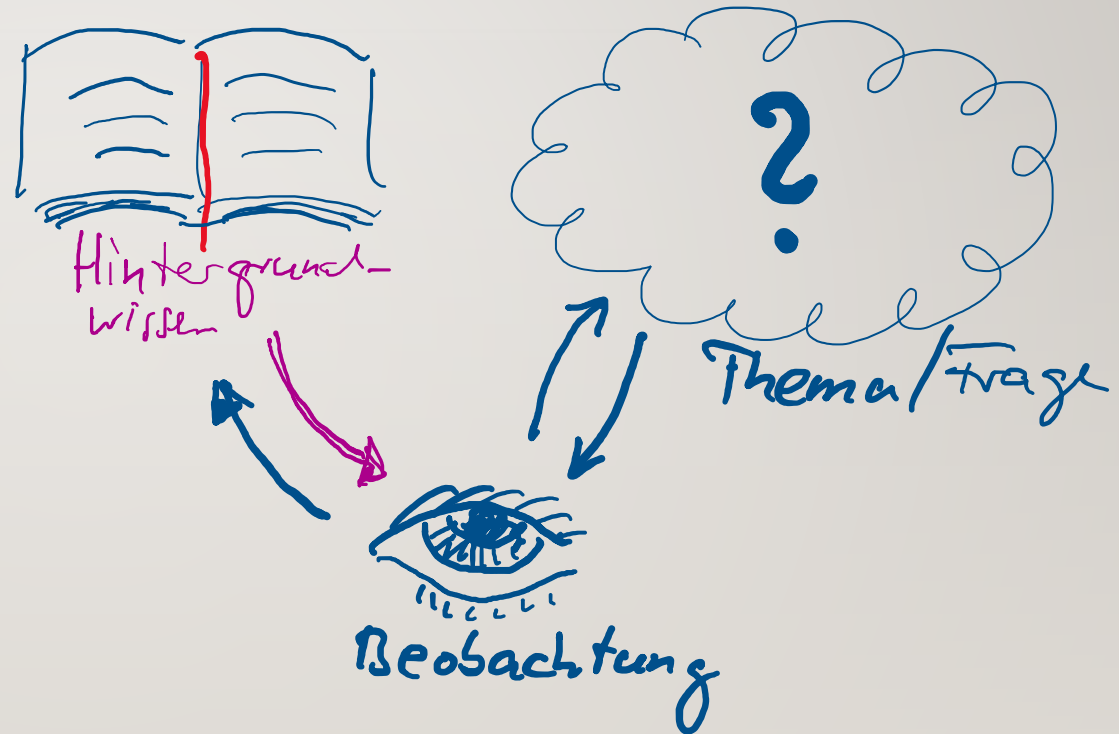 Hintergrund-
wissen
?
Thema/Frage
Beobachtung